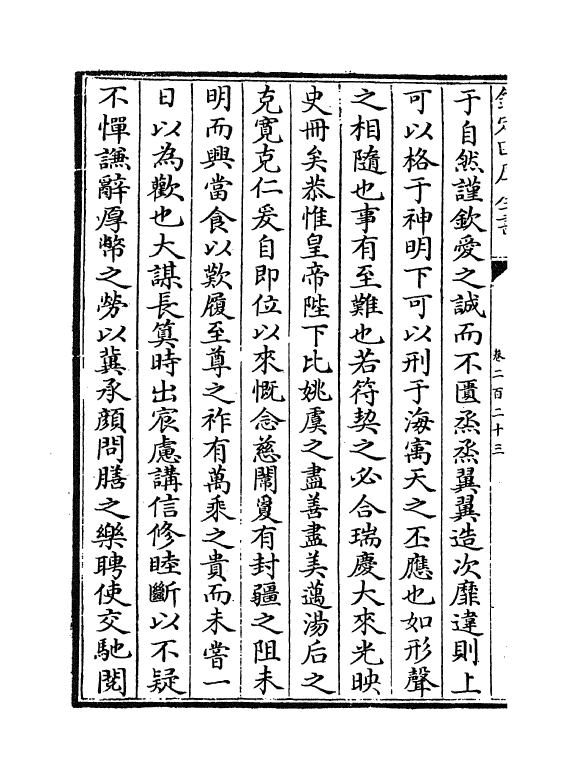 欽定四庫全書
卷二百二十三
于自然謹欽愛之誠而不匱烝烝翼翼造次靡違則上
可以格于神明下可以刑于海寓天之丕應也如形聲
之相隨也事有至難也若符契之必合瑞慶大來光映
史冊矣恭惟皇帝陛下比姚虞之盡善盡美邁湯后之
克寛克仁爰自即位以來慨念慈闈夐有封疆之阻未
明而興當食以歎履至尊之祚有萬乘之貴而未嘗一
日以為歡也大謀長筭時出宸慮講信修睦斷以不疑
不憚謙辭厚幣之勞以冀承顔問膳之樂聘使交馳閲